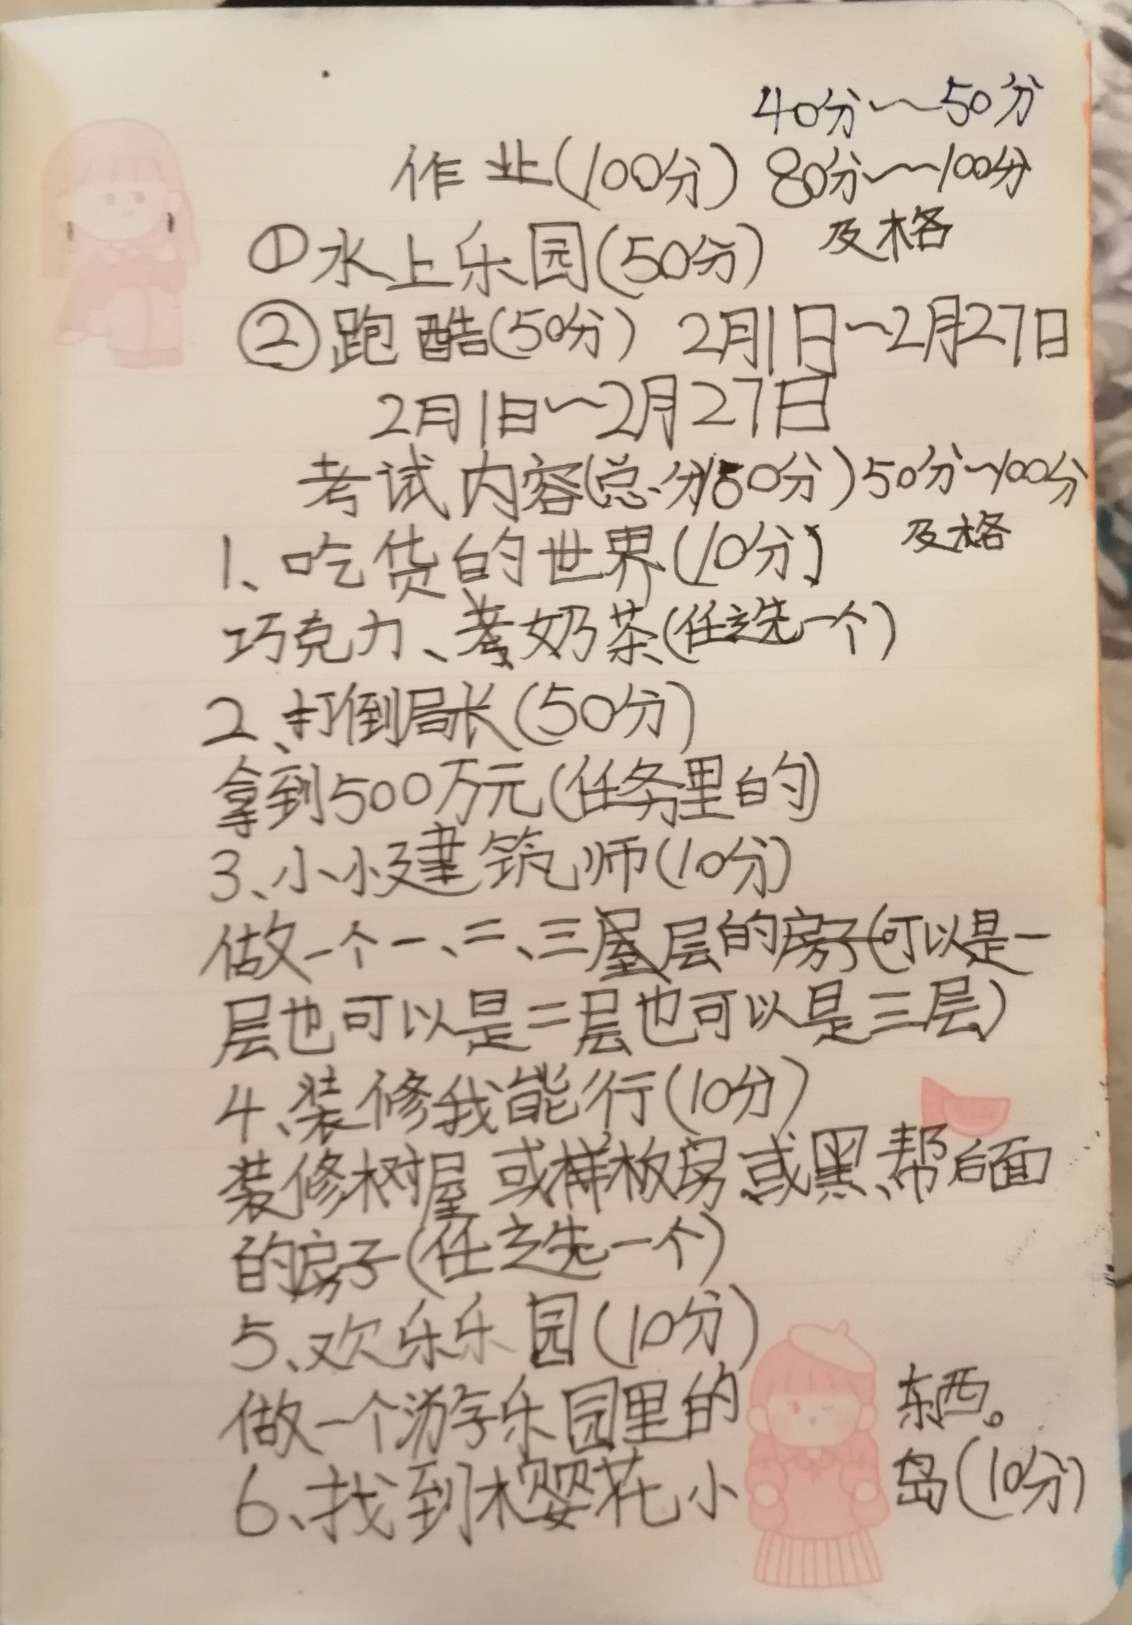 40分~50分
作业(100分) 80分~100分
及格
①水上乐园(50分)
②跑酷(50分) 2月1日~2月27日
2月1日~2月27日
考试内容(总分150分) 50分~100分
及格
1、吃货的世界(10分)
巧克力、奶茶(任意选一个)
2、打倒局长(50分)
拿到500万元(任务里的)
3、小小建筑师(10分)
做一个一、二、三层的房子(可以是一
层也可以是二层也可以是三层)
4、装修我能行(10分)
装修树屋或样板房或黑帮后面
的房子(任意选一个)
5、欢乐乐园(10分)
做一个游乐园里的东西。
6、找到樱花小岛(10分)